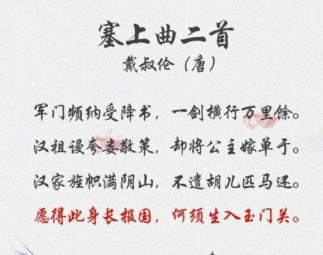 塞上曲二首
戴叔伦（唐）
军门频纳受降书，一剑横行万里馀。
汉祖谩夸娄敬策，却将公主嫁单于。
汉家旌帜满阴山，不遣胡儿匹马还。
愿得此身长报国，何须生入玉门关。